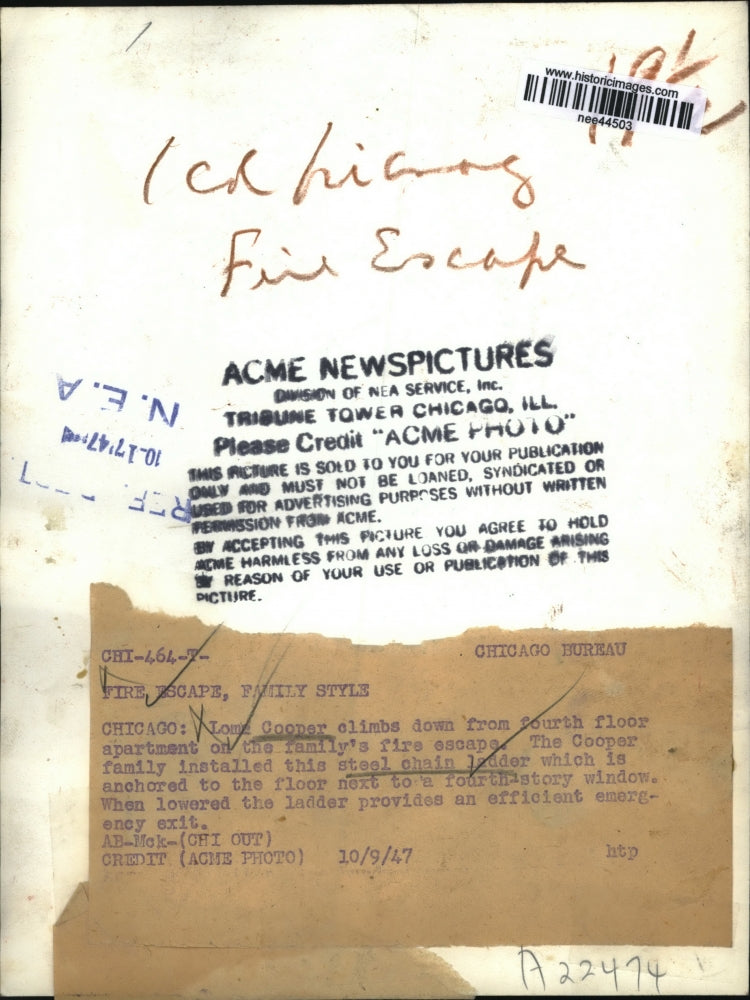 www.historicimages.com
nee44503
1 col
Fire Escape
ACME NEWSPICTURES
DIVISION OF NEA SERVICE, Inc.
TRIBUNE TOWER CHICAGO, ILL.
Please Credit "ACME PHOTO"
THIS PICTURE IS SOLD TO YOU FOR YOUR PUBLICATION
ONLY AND MUST NOT BE LOANED, SYNDICATED OR
USED FOR ADVERTISING PURPOSES WITHOUT WRITTEN
PERMISSION FROM ACME.
BY ACCEPTING THIS PICTURE YOU AGREE TO HOLD
ACME HARMLESS FROM ANY LOSS OR DAMAGE ARISING
BY REASON OF YOUR USE OR PUBLICATION OF THIS
PICTURE.
N.E.A
10.17'47
REF.
CHI-464-T-
CHICAGO BUREAU
FIRE ESCAPE, FAMILY STYLE
CHICAGO: Cooper climbs down from fourth floor
apartment on the family's fire escape. The Cooper
family installed this steel chain ladder which is
anchored to the floor next to a fourth-story window.
When lowered the ladder provides an efficient emerg-
ency exit.
AB-Mck-(CHI OUT)
CREDIT (ACME PHOTO) 10/9/47 htp
A 22474